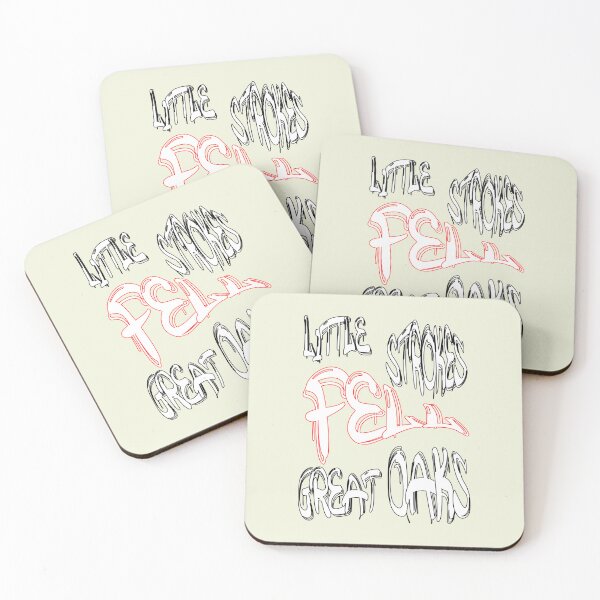 LITTLE STROKES
FELL
LITTLE STROKES
FELL
OAKS
LITTLE STROKES
FELL
GREAT OAKS
LITTLE STROKES
FELL
GREAT OAKS